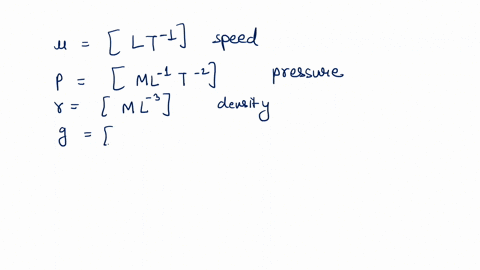 u = [ L T⁻¹ ] speed
P = [ M L⁻¹ T⁻² ] pressure
r = [ M L⁻³ ] density
g = [